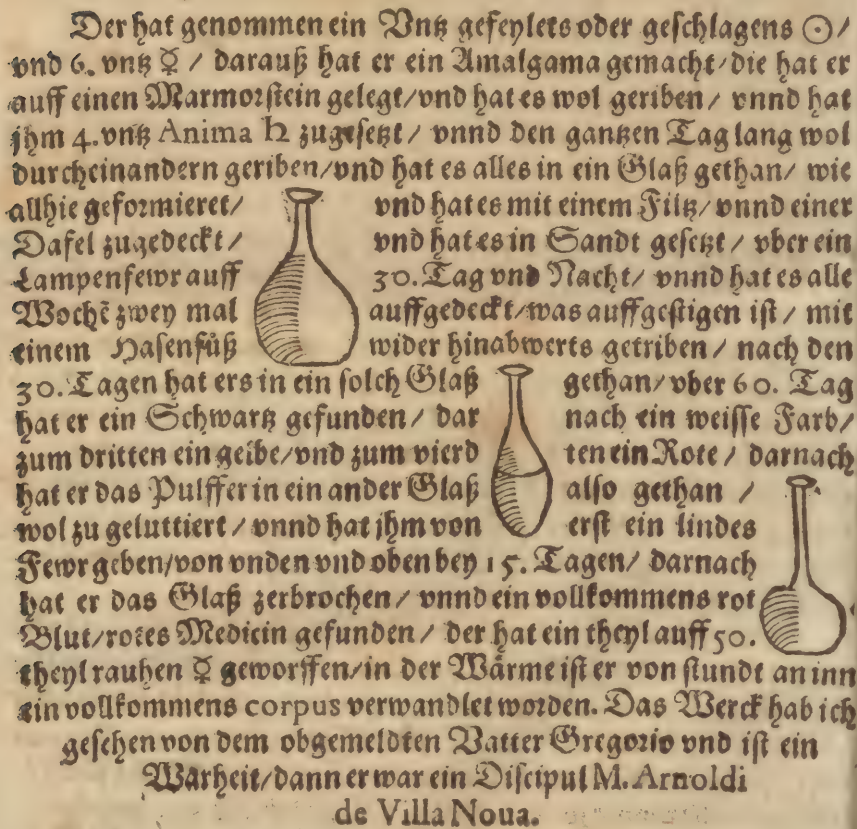 Der hat genommen ein Vntz gefeylets oder geschlagens ☉/
vnd 6. vntz ☿ / darauß hat er ein Amalgama gemacht/die hat er
auff einen Marmorstein gelegt/vnd hat es wol geriben / vnnd hat
jhm 4. vntz Anima ♄ zugesetzt / vnnd den gantzen Tag lang wol
durcheinandern geriben/vnd hat es alles in ein Glaß gethan/ wie
allhie geformieret/ vnd hat es mit einem Filtz/ vnnd einer
Dafel zugedeckt/ vnd hat es in Sandt gesetzt / vber ein
Lampenfewr auff 30. Tag vnd Nacht/ vnnd hat es alle
Wochẽ zwey mal auffgedeckt/was auffgestigen ist / mit
einem Hasenfüß wider hinabwerts getriben / nach den
30. Tagen hat ers in ein solch Glaß gethan/vber 60. Tag
hat er ein Schwartz gefunden / dar nach ein weisse Farb/
zum dritten ein gelbe/vnd zum vierd ten ein Rote / darnach
hat er das Pulffer in ein ander Glaß also gethan /
wol zu geluttiert / vnnd hat jhm von erst ein lindes
Fewr geben/von vnden vnd oben bey 15. Tagen/ darnach
hat er das Glaß zerbrochen / vnnd ein vollkommens rot
Blut/rotes Medicin gefunden / der hat ein theyl auff 50.
theyl rauhen ☿ geworffen/in der Wärme ist er von stundt an inn
ein vollkommens corpus verwandlet worden. Das Werck hab ich
gesehen von dem obgemeldten Vatter Gregorio vnd ist ein
Warheit/dann er war ein Discipul M. Arnoldi
de Villa Noua.